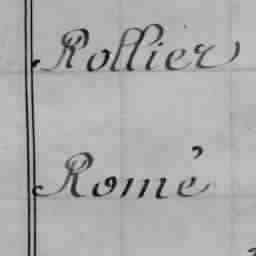 Rollier
Romé